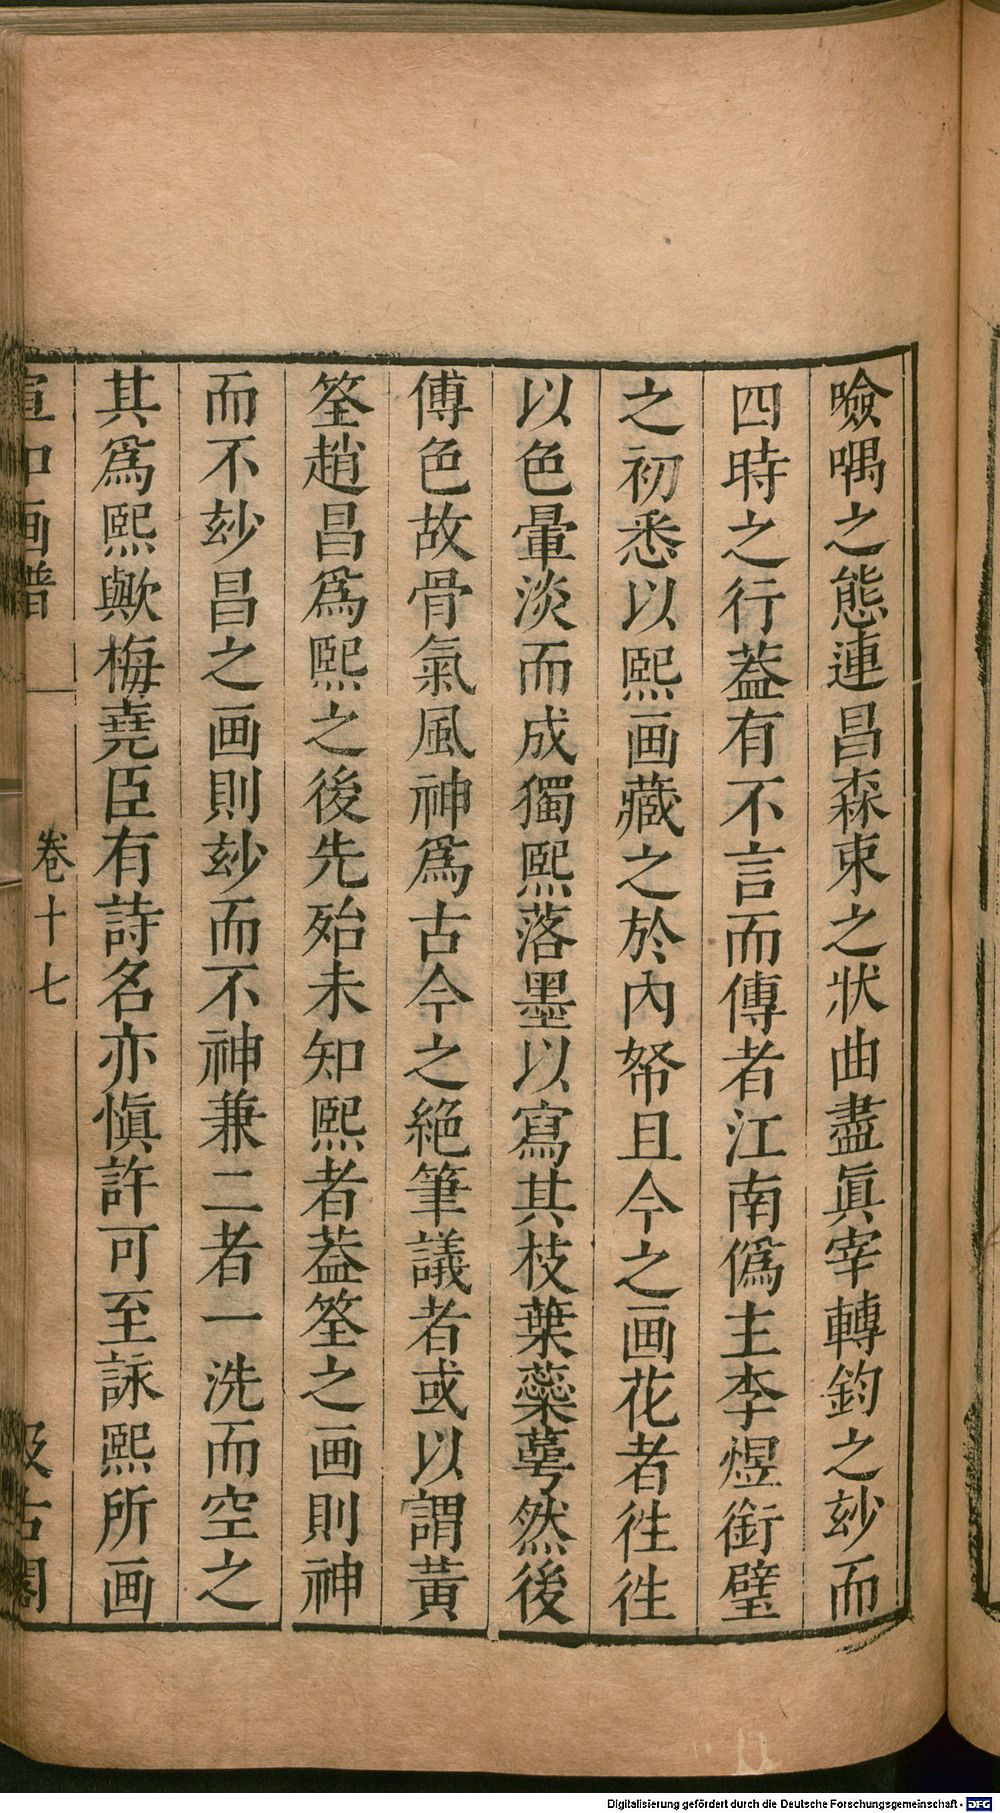 噞喁之態連昌森束之狀曲盡眞宰轉鈞之玅而
四時之行葢有不言而傳者江南僞主李煜銜璧
之初悉以熙画藏之於內帑且今之画花者徃徃
以色暈淡而成獨熙落墨以寫其枝葉蘂萼然後
傅色故骨氣風神爲古今之絕筆議者或以謂黃
筌趙昌爲熙之後先殆未知熙者葢筌之画則神
而不玅昌之画則玅而不神兼二者一洗而空之
其爲熙歟梅堯臣有詩名亦愼許可至詠熙所画
宣和画譜 卷十七 汲古閣
Digitalisierung gefördert durch die Deutsche Forschungsgemeinschaft - DFG